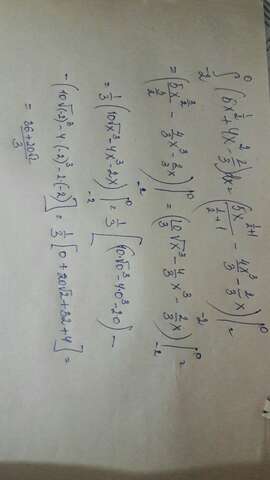 ∫₋₂⁰ (5x^(1/2) + 4x² - 2/3)dx = (5x^(1/2+1)/(1/2+1) - 4x³/3 - 2/3 x)|₋₂⁰
= (5x^(3/2)/(3/2) - 4/3 x³ - 2/3 x)|₋₂⁰ = (10/3 √x³ - 4/3 x³ - 2/3 x)|₋₂⁰
= 1/3 (10√x³ - 4x³ - 2x)|₋₂⁰ = 1/3 [(10·√0³ - 4·0³ - 2·0) -
- (10√(-2)³ - 4·(-2)³ - 2·(-2)] = 1/3 [0 + 20√2 + 32 + 4] =
= (36+20√2)/3